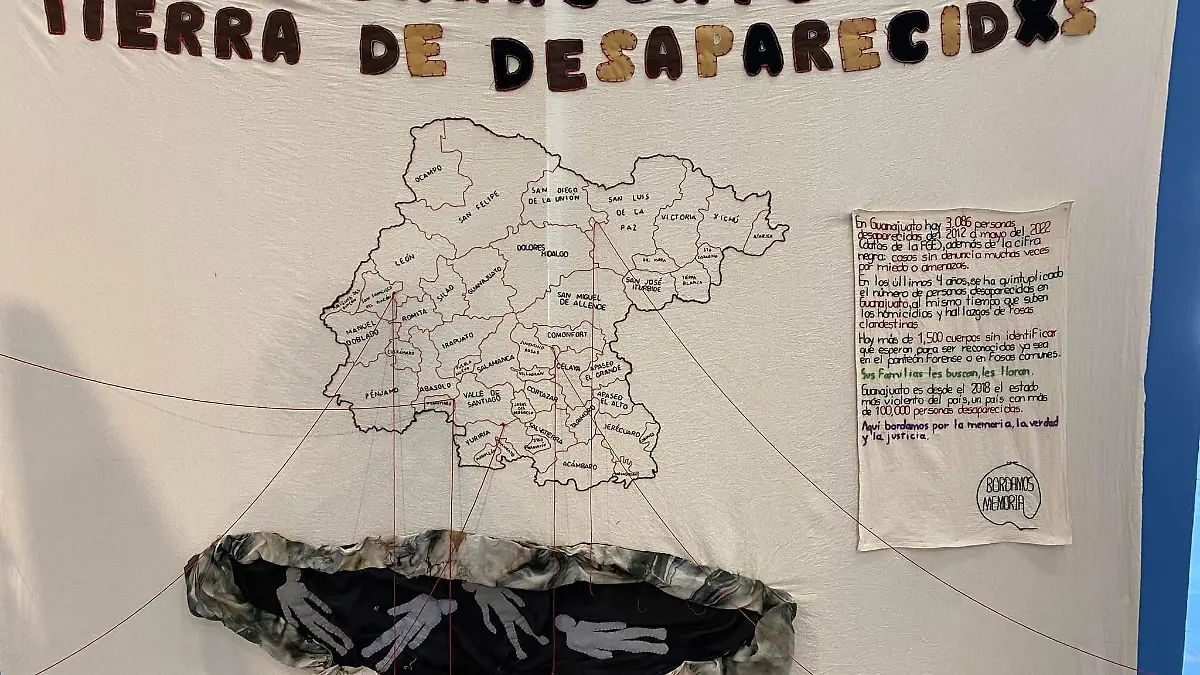 TIERRA DE DESAPARECIDXS
OCAMPO
SAN FELIPE
SAN DIEGO
DE LA UNIÓN
SAN LUIS
DE LA
PAZ
VICTORIA
XICHÚ
ATARJEA
LEÓN
SILAO
GUANAJUATO
DOLORES
HIDALGO
SAN MIGUEL
DE ALLENDE
SAN JOSÉ
ITURBIDE
TIERRA
BLANCA
MANUEL
DOBLADO
ROMITA
IRAPUATO
SALAMANCA
COMONFORT
CELAYA
APASEO
EL GRANDE
APASEO
EL ALTO
PÉNJAMO
ABASOLO
VALLE DE
SANTIAGO
CORTAZAR
JERÉCUARO
YURIRIA
SALVATIERRA
ACÁMBARO
En Guanajuato hay 3,086 personas
desaparecidas del 2012 a mayo del 2022
(datos de la FGE), además de la cifra
negra: casos sin denuncia muchas veces
por miedo o amenazas.
En los últimos 4 años, se ha quintuplicado
el número de personas desaparecidas en
Guanajuato, al mismo tiempo que suben
los homicidios y hallazgos de fosas
clandestinas
Hay más de 1,500 cuerpos sin identificar
que esperan para ser reconocidos ya sea
en el panteón forense o en fosas comunes.
Sus familias les buscan, les lloran.
Guanajuato es desde el 2018 el estado
más violento del país, un país con más
de 100,000 personas desaparecidas.
Aquí bordamos por la memoria, la verdad
y la justicia.
BORDAMOS
MEMORIA